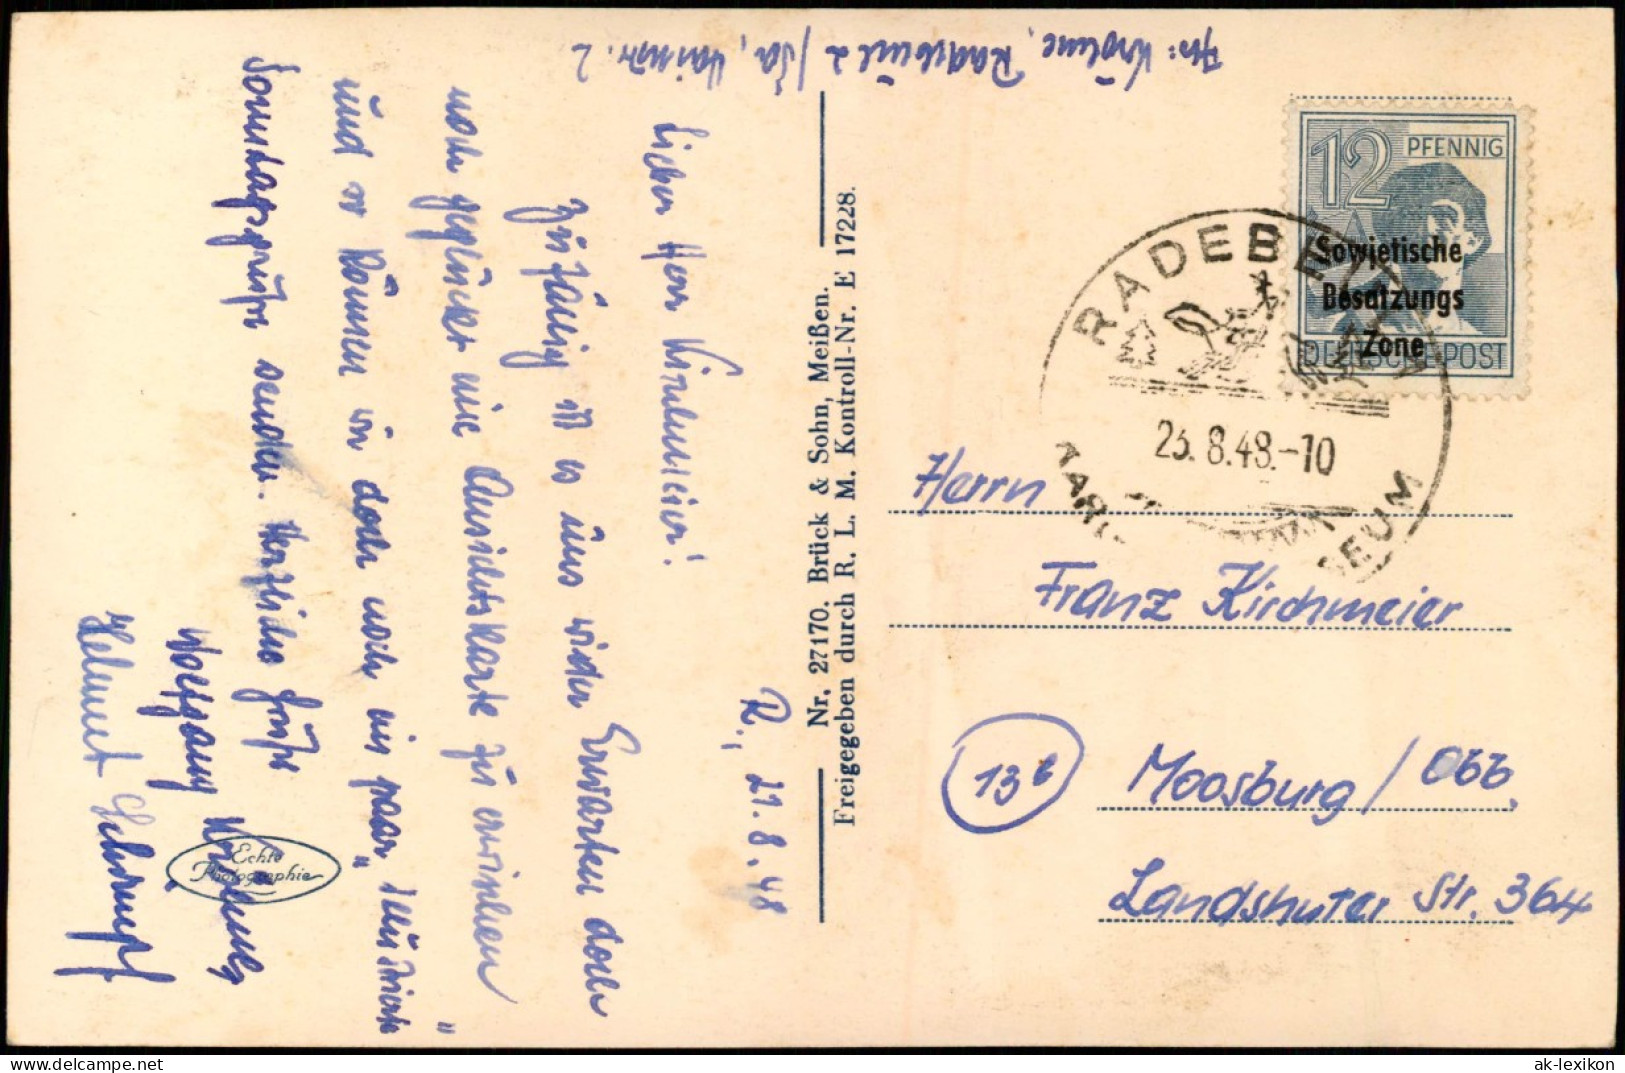 Radebeul 2 / Sa,
R., 21.8.48
Lieber Herr Kirchmeier!
Zufällig ist es uns wider Erwarten doch
noch geglückt eine Aussichtskarte zu erwischen
und so können wir doch noch ein paar „illustrierte“
Sonntagsgrüße senden. Herzliche Grüße
Wolfgang
Helmut Schrumpf
Echte
Photographie
Nr. 27170. Brück & Sohn, Meißen.
Freigegeben durch R. L. M. Kontroll-Nr. E 17228.
12 PFENNIG
Sowjetische
Besatzungs
Zone
DEUTSCHE POST
RADEBEUL
23.8.48.-10
Herrn
Franz Kirchmeier
13b
Moosburg / Obb,
Landshuter Str. 364
ak-lexikon
delcampe.net